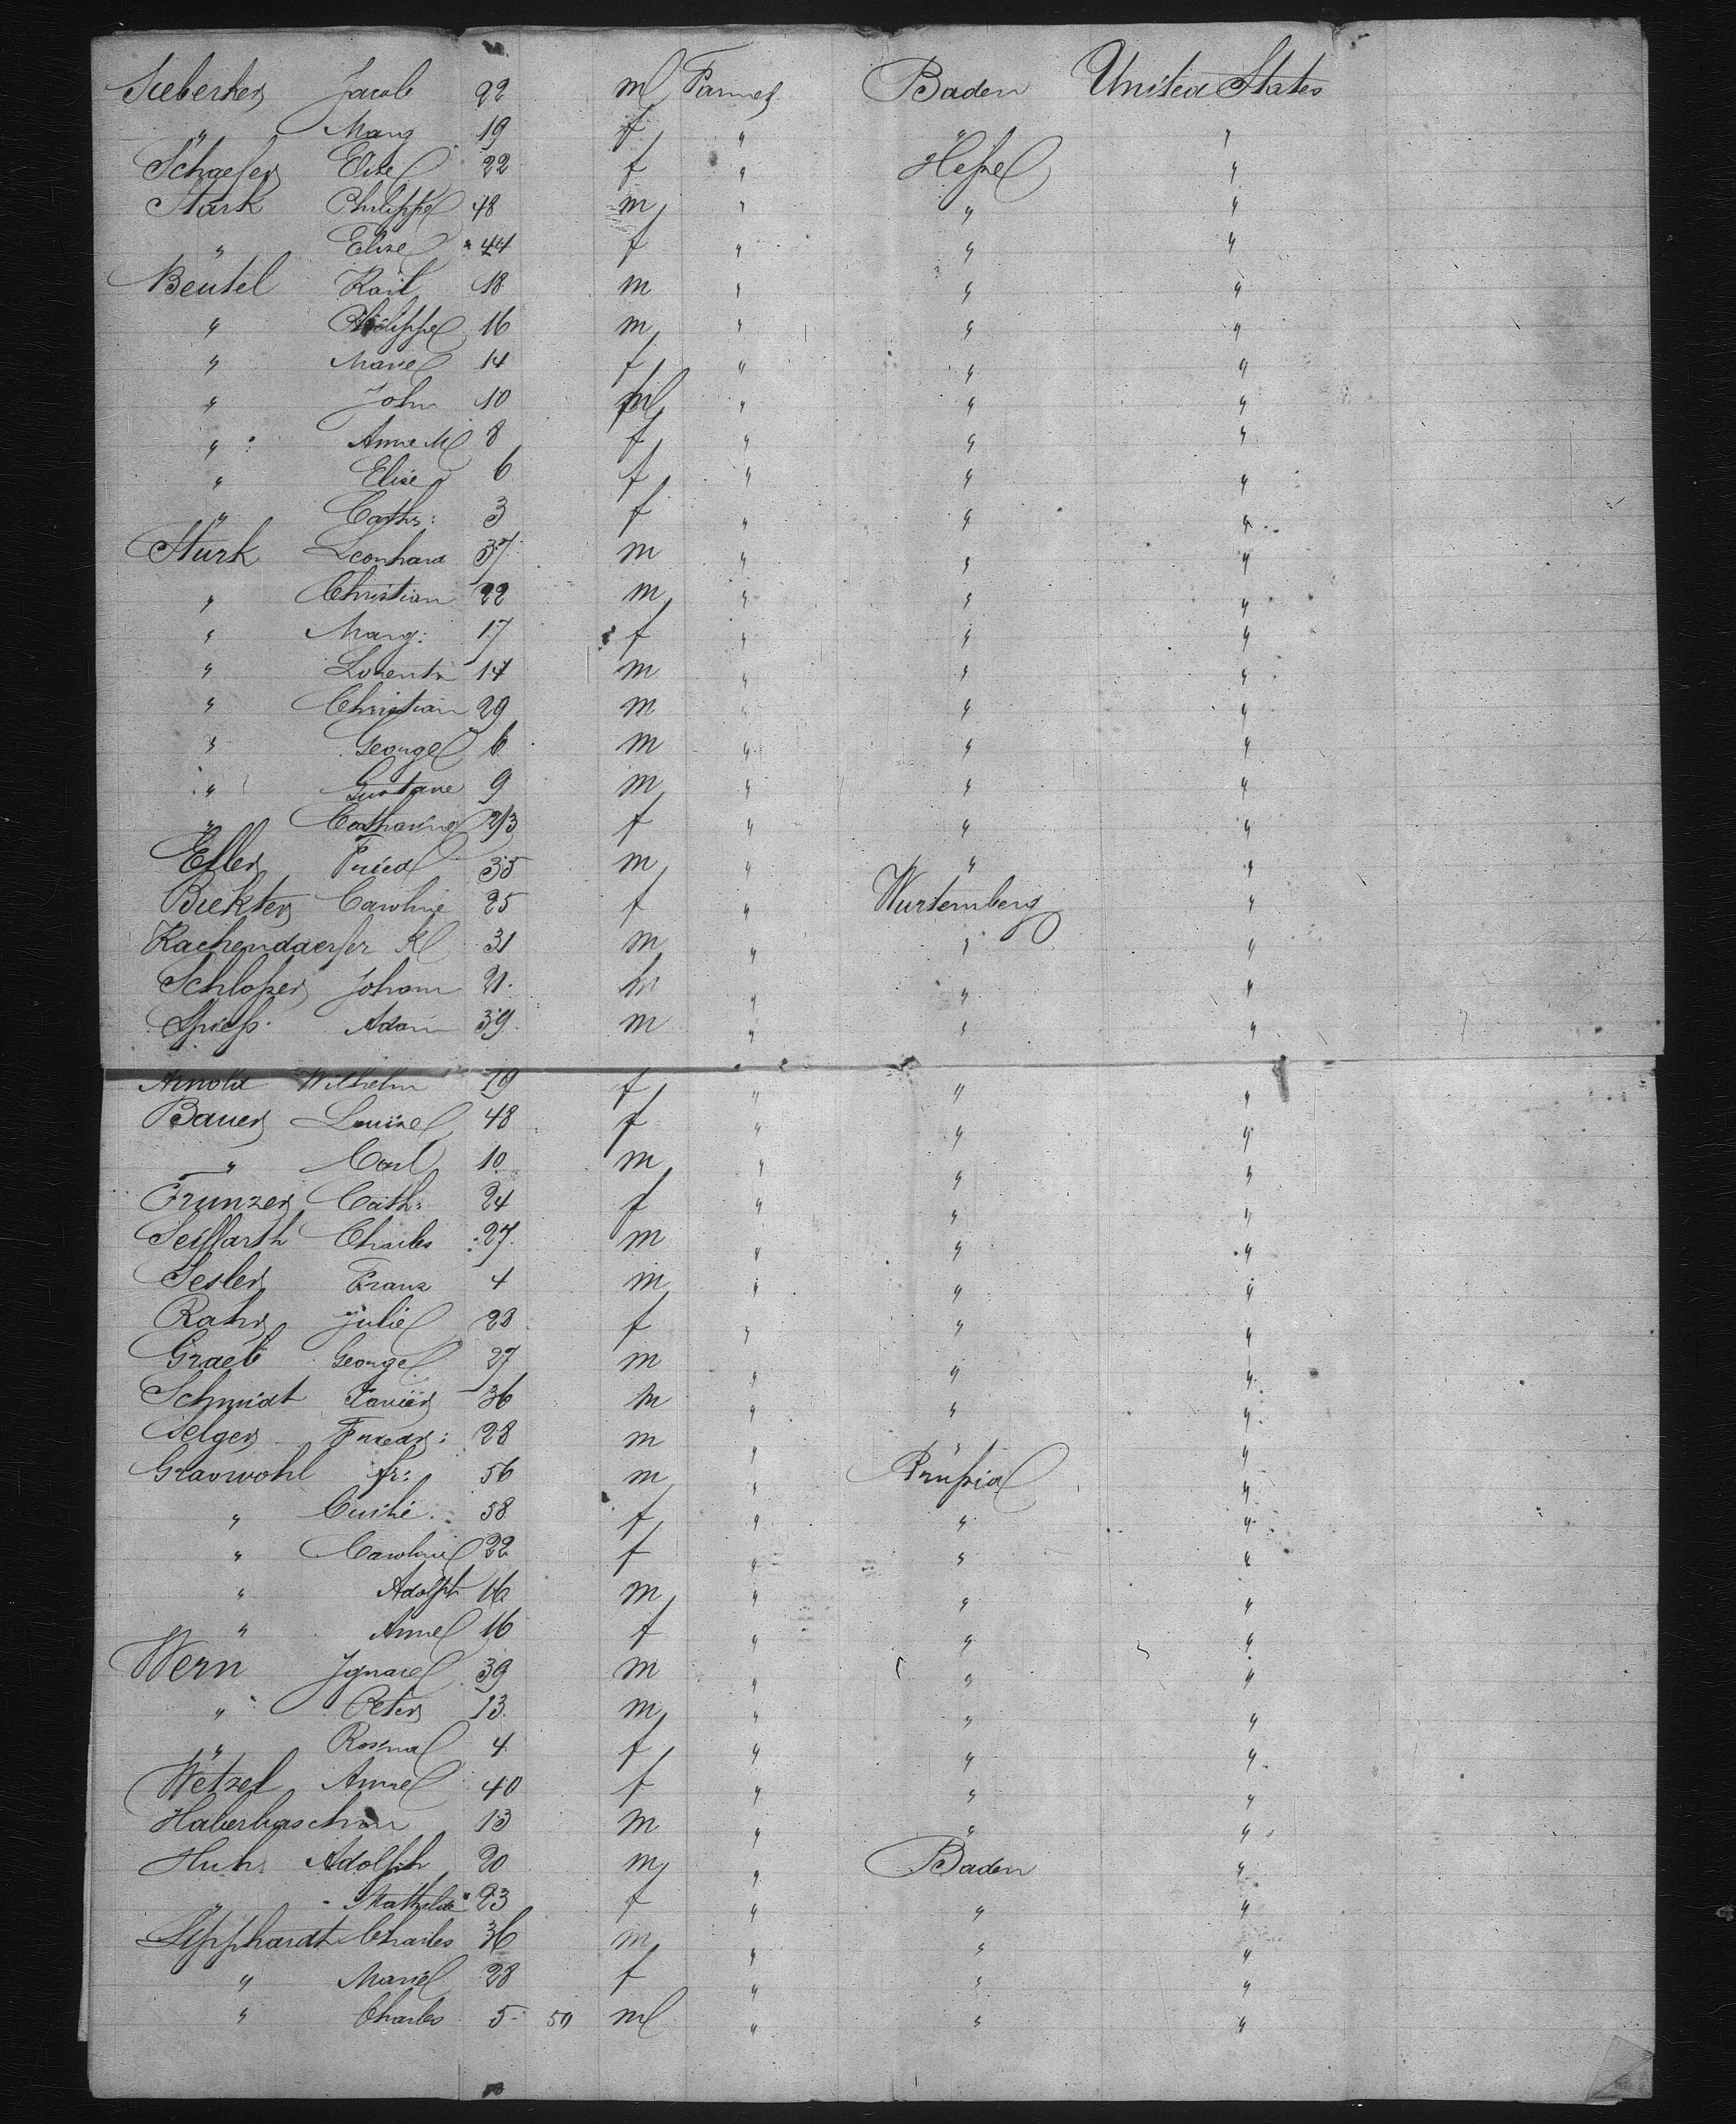 Sieberker Jacob 22 m Farmer Baden United States
" Marg 19 f " " "
Schaefer Elise 22 f " Hesse "
Stark Philippe 48 m " " "
" Elise 44 f " " "
Beutel Karl 18 m " " "
" Philippe 16 m " " "
" Marie 14 f " " "
" John 10 m " " "
" Anne M 8 f " " "
" Elise 6 f " " "
" Cath: 3 f " " "
Sturk Leonhard 37 m " " "
" Christian 22 m " " "
" Marg: 17 f " " "
" Lorentz 14 m " " "
" Christian 29 m " " "
" George 6 m " " "
" Gustave 9 m " " "
" Catharine 2/3 f " " "
Eller Fried 35 m " " "
Biekter Caroline 25 f " Wurtemberg "
Kachendaerfer K 31 m " " "
Schloßer Johann 21 m " " "
Spieß Adam 39 m " " "
Arnold Wilhelm 19 f " " "
Bauer Louise 48 f " " "
" Carl 10 m " " "
Frünzer Cath: 24 f " " "
Seiffarth Charles 27 m " " "
Sesler Franz 4 m " " "
Rahr Julie 28 f " " "
Graeb George 27 m " " "
Schmidt Xavier 36 m " " "
Selger Friedr: 28 m " " "
Gravwohl Fr: 56 m " Prußia "
" 58 f " " "
" Caroline 22 f " " "
" Adolph 16 m " " "
" Anne 16 f " " "
Wern Ignace 39 m " " "
" Peter 13 m " " "
" Rosina 4 f " " "
Wetzel Anne 40 f " " "
13 m " " "
Huh Adolph 20 m " Baden "
" Mathilde 23 f " " "
Lipphardt Charles 36 m " " "
" Marie 28 f " " "
" Charles 5 50 m " " "